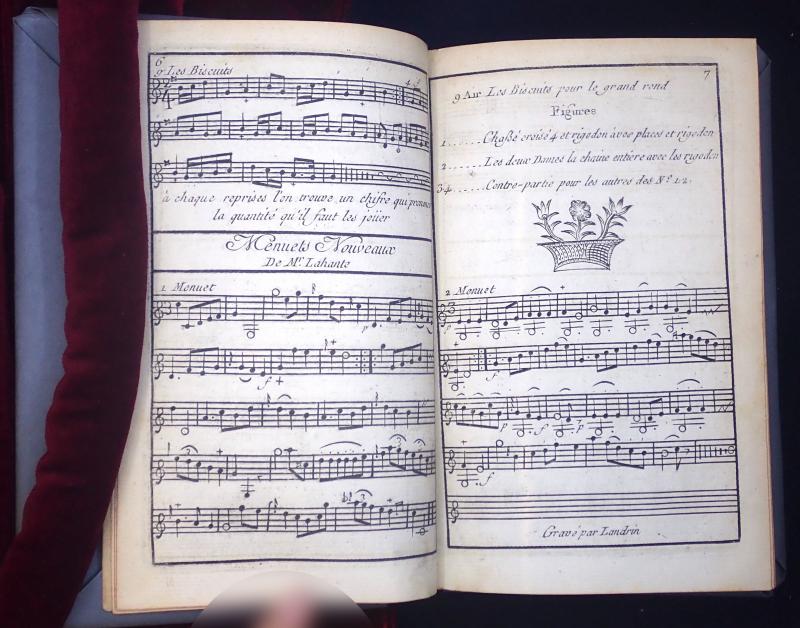 6
9 Les Biscuits
à chaque reprises l'on trouve un chifre qui
la quantité qu'il faut les joüer
Menuets Nouveaux
De Mr. Lahante
1 Menuet
p
f +
f
7
9 Air Les Biscuits pour le grand rond
Figures
1 ...... Chassé croisé 4 et rigodon avec places et rigodon
2 ...... Les deux Dames la chaine entiere avec les rigodon
3 4 ...... Contre-partie pour les autres des No. 1.2.
2 Menuet
p
f
p f p
f
Gravé par Landrin